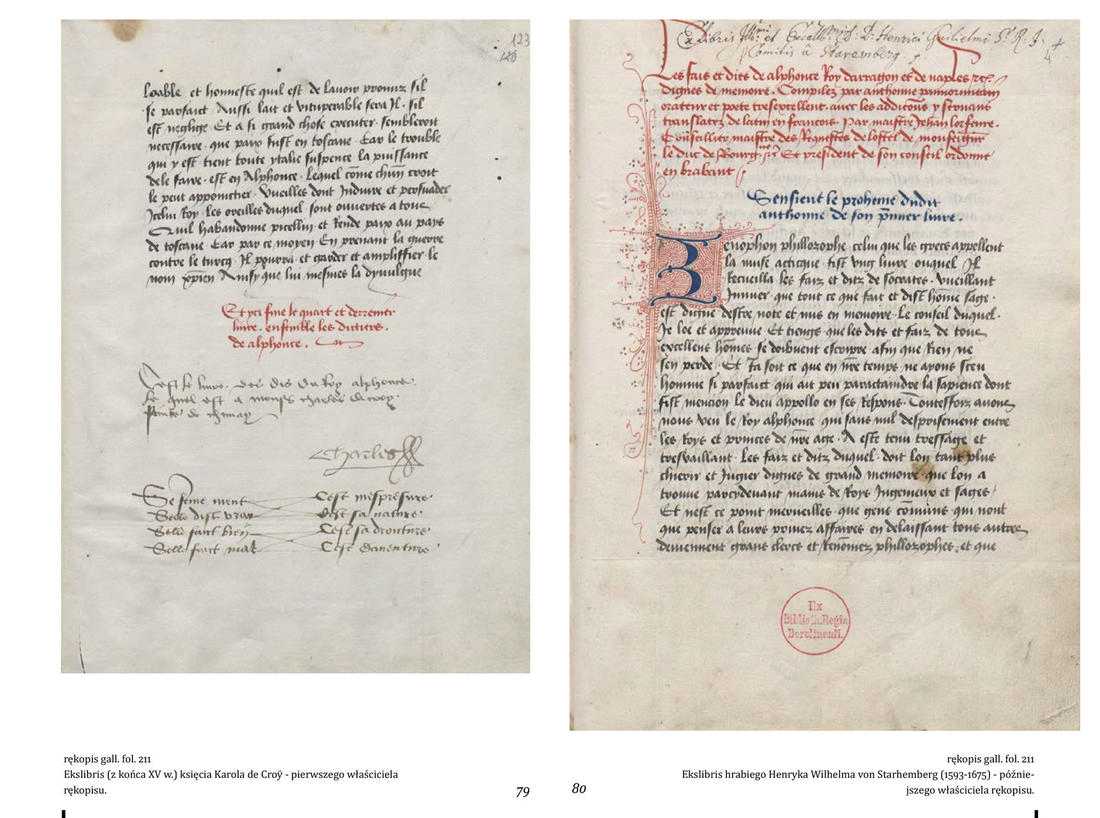 123
loable et honneste quil est de lavoir promis sil
se parfait Aussi lait et vituperable sera Il . sil
est neglige Et a si grand chose executer sembleroit
necessaire que paix fust en toscane Car le trouble
qui y est tient toute ytalie suspence la puissance
de le faire est en Alphonce . Lequel come chun croit
le peut appointier . Vueilles dont Induire et persuader
Icelui Roy . les oreilles duquel sont ouvertes a tous
Quil habandonne picellin et Rende paix au pays
de toscane Car par ce moyen En prenant la guerre
contre le turcq . Il pourra et garder et amplifier le
nom xpien Ainsy que lui mesmes la divulgue
Et yci fine le quart et derrenier
livre . ensemble les dictiers .
de alphonce .
Cest le livre . des dis du Roy alphonce .
le quel est a monsr charles de croy .
prince de chimay
Charles
Se feme ment Cest mespresure
Selle dist vray Cest sa nature
Selle fait bien Cest sa droiture
Selle fait mal Cest daventure
Ex libris Illmi et Excellmi D: D: Henrici Guilielmi S. R. I.
Comitis à Staremberg .
4
Les fais et dits de alphonce Roy darragon et de naples
dignes de memoire . Compilez par anthonne panormitain
orateur et poete tresexcellent . avec les addicions
translatez de latin en francois . Par maistre Jehan lorfevre .
Conseillier maistre des Requestes de lostel de monseignr
le duc de Bourgne Et president de son conseil ordonne
en brabant
Sensieut le proheme dudit
anthonne de son pmier livre .
Xenophon phillozophe celui que les grecs appellent
la muse acticque fist ung livre ouquel Il
Recueilla les faiz et ditz de socrates . Vueillant
Inniuer que tout ce que fait et dist home sage .
est digne destre note et mis en memoire . Le conseil duquel .
Je loe et appreuve Et tiengs que les dits et faiz de tous
excellens homes se doibvent escripre afin que Rien ne
sen perde . Et Ja soit ce que en nre temps ne ayons seu
homme si parfait qui ait peu paractaindre la sapience dont
fist mencion le dieu appollo en ses Respons . Toutesfoiz avons
nous veu le Roy alphonce qui sans nul desprisement entre
les Roys et princes de nre age . A este tenu tressage et
tresvaillant . Les faiz et ditz duquel . doit lon tant plus
chierir et Jugier dignes de grand memoire que lon a
trouve parcydevant mains de Roys Ingenieux et sages
Et nest ce point merveilles que gens comuns qui nont
que penser a leurs privez affaires en delaissant tous autres
deviennent grans clercs et Renomez phillozophes . et que
Ex
Biblioth. Regia
Berolinensi.
rękopis gall. fol. 211
Ekslibris (z końca XV w.) księcia Karola de Croÿ - pierwszego właściciela
rękopisu.
79
80
rękopis gall. fol. 211
Ekslibris hrabiego Henryka Wilhelma von Starhemberg (1593-1675) - późnie-
jszego właściciela rękopisu.